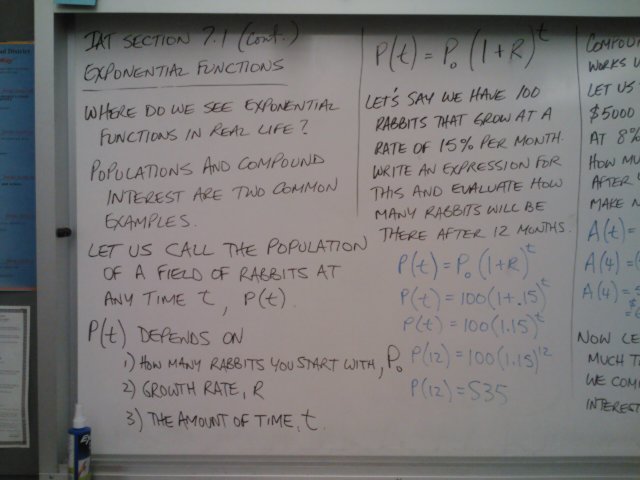 IAT SECTION 7.1 (CONT.)
EXPONENTIAL FUNCTIONS
WHERE DO WE SEE EXPONENTIAL
FUNCTIONS IN REAL LIFE?
POPULATIONS AND COMPOUND
INTEREST ARE TWO COMMON
EXAMPLES.
LET US CALL THE POPULATION
OF A FIELD OF RABBITS AT
ANY TIME t, P(t).
P(t) DEPENDS ON
1) HOW MANY RABBITS YOU START WITH, P₀
2) GROWTH RATE, R
3) THE AMOUNT OF TIME, t.
P(t) = P₀ (1+R)^t
LET'S SAY WE HAVE 100
RABBITS THAT GROW AT A
RATE OF 15% PER MONTH.
WRITE AN EXPRESSION FOR
THIS AND EVALUATE HOW
MANY RABBITS WILL BE
THERE AFTER 12 MONTHS.
P(t) = P₀ (1+R)^t
P(t) = 100(1+.15)^t
P(t) = 100(1.15)^t
P(12) = 100(1.15)^12
P(12) = 535
COMPOU
WORKS
LET US
$5000
AT 8%
HOW MU
AFTER
MAKE
A(t) =
A(4) =
A(4) =
NOW LE
MUCH
WE COM
INTEREST